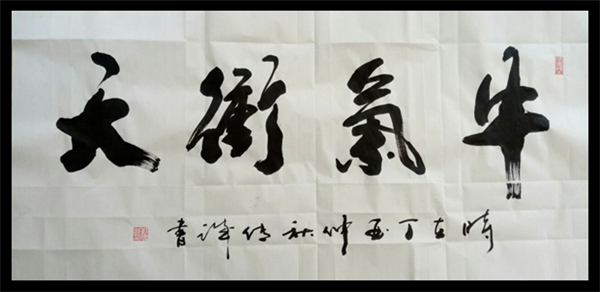 牛氣衝天
時在丁酉仲秋書